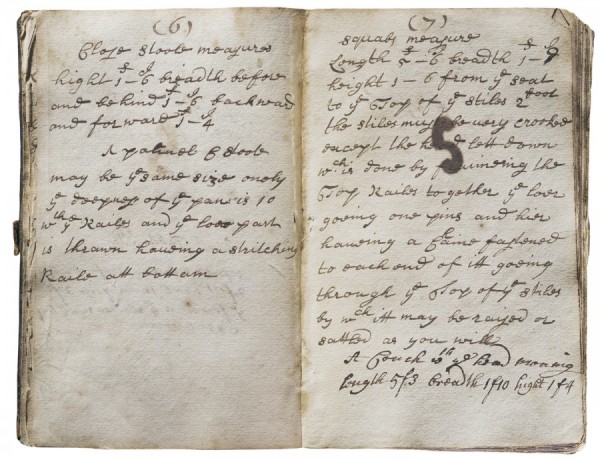 (6)
Close stoole measures
hight 1 f - 6 i breadth before
and behind 1 f - 6 i backward
and forward 1 f - 4
A pannel Cstoole
may be ye same size onely
ye deepnes of ye pan is 10
wth ye Railes and ye loer part
is thrawn haveing a stritching
Raile att bottam
(7)
squabs measure
Length 5 f - 6 i breadth 1 f -
height 1 - 6 from ye seat
to ye Top of ye stiles 2 foot
the stiles must be very crooked
except the left down
wch is done by the
Top Railes together ye loer
goeing one pins and
haveing a Chaine fastened
to each end of itt goeing
through ye Top of ye stiles
by wch itt may be raysed or
sattled as you will
A Couch wth ye head
Length 5 f 3 breadth 1 f 10 hight 1 f 4